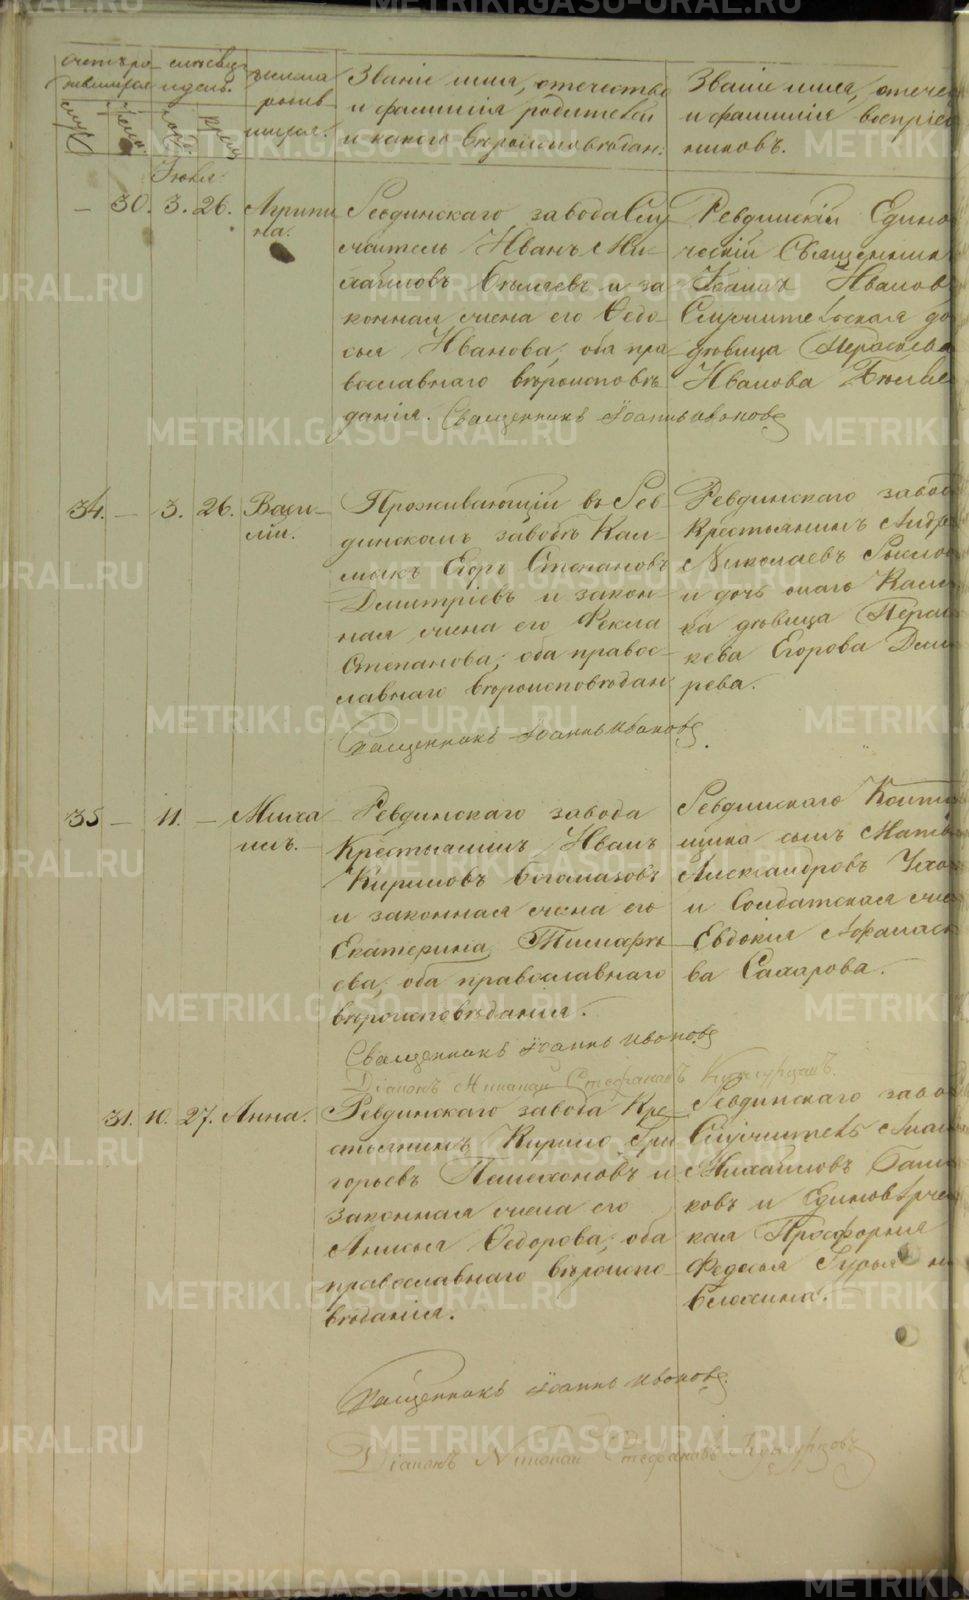 METRIKI.GASO-URAL.RU
Званіе имя, отечество
и фамилія родителей
и какого вѣроисповѣдан:
Званіе имя, отечес
и фамилія воспріе
никовъ.
Іюня
— 30. 3. 26. Агрипи
на.
Ревдинскаго завода Слу
житель Иванъ Ми-
хайловъ Бѣляевъ и за
конная жена его Ѳедо
сья Иванова, оба пра
вославнаго вѣроисповѣ
данія. Священникъ Іоаннъ Ивановъ
Ревдинскій Едино
ческій Священник
Іоаннъ Иванов
Служительская до
дѣвица Параскева
Иванова Бѣляе
34. — 3. 26. Васи-
лій.
Проживающій въ Рев-
динскомъ заводѣ Кал-
мыкъ Егоръ Степановъ
Дмитріевъ и закон-
ная жена его Фекла
Степанова, оба правос-
лавнаго вѣроисповѣдан
Священникъ Іоаннъ Ивановъ.
Ревдинскаго завод
Крестьянинъ Андре
Николаевъ
и дочь онаго Калм
ка дѣвица Парас
кева Егорова Дми
рева.
35 — 11. — Миха
илъ.
Ревдинскаго завода
Крестьянинъ Иванъ
Кириловъ Богомазовъ
и законная жена его
Екатерина Тимофѣ
ева, оба православнаго
вѣроисповѣданія.
Священникъ Іоаннъ Ивановъ
Діаконъ Николай Стефановъ
Ревдинскаго
щика сынъ Матв
Александровъ
и Солдатская жен
Евдокія Афанась
ва Сахарова.
31. 10. 27. Анна.
Ревдинскаго завода Кре
стьянинъ Кирило Гри
горьевъ Пашехоновъ и
законная жена его
Анисья Ѳедорова, оба
православнаго вѣроиспо-
вѣданія.
Священникъ Іоаннъ Ивановъ
Діаконъ Николай Стефановъ
Ревдинскаго заво
Служитель
Михайловъ
ковъ и Единовѣрчес
кая Просфорня
Федосья Гурьян
Белохина.